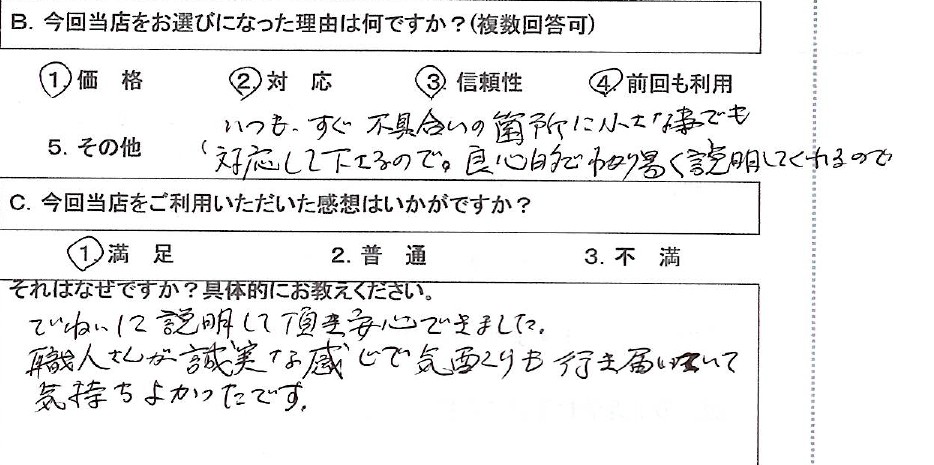 B. 今回当店をお選びになった理由は何ですか？(複数回答可)
① 価 格 ② 対 応 ③ 信頼性 ④ 前回も利用
いつも、すぐ 不具合いの箇所に小さな事でも
5. その他 (対応して下さるので。良心的で分り易く説明してくれるので
C. 今回当店をご利用いただいた感想はいかがですか？
① 満 足 2. 普 通 3. 不 満
それはなぜですか？具体的にお教えください。
ていねいに説明して頂き安心できました。
職人さんが誠実な感じで気配りも行き届いていて
気持ちよかったです。